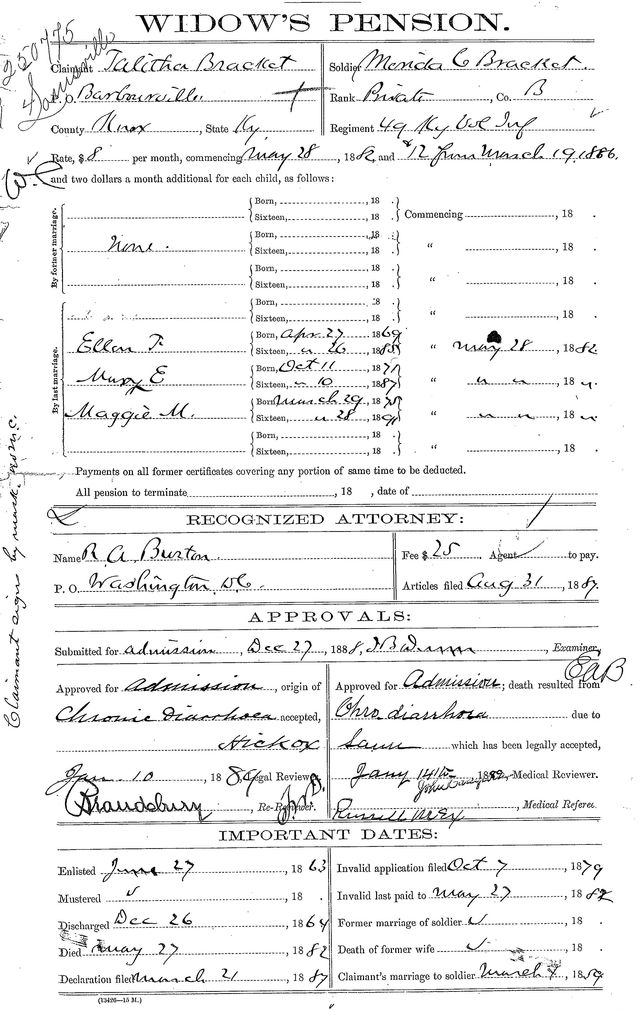 WIDOW'S PENSION.
250475
Louisville
Claimant Talitha Bracket
Soldier Merida C Bracket.
P. O. Barbourville
Rank Private, Co. B
County Knox, State Ky.
Regiment 49 Ky Vol Inf
Rate, $8 per month, commencing May 28, 1882, and $12 from March 19, 1886.
and two dollars a month additional for each child, as follows:
By former marriage.
Born, , 18 .
Sixteen, , 18 . Commencing , 18 .
None.
Born, , 18 .
Sixteen, , 18 . " , 18 .
Born, , 18 .
Sixteen, , 18 . " , 18 .
By last marriage.
Born, , 18 .
Sixteen, , 18 . " , 18 .
Ellen F.
Born, Apr 27 1869
Sixteen, " 26 1885 " May 28, 1882
Mary E
Born, Oct 11 1871
Sixteen, " 10 1887 " " " , 18 "
Maggie M.
Born, March 29 1875
Sixteen, " 28 1891 " " " , 18 "
Born, , 18
Sixteen, , 18 " , 18 .
Payments on all former certificates covering any portion of same time to be deducted.
All pension to terminate , 18 , date of
Claimant signs by mark.
RECOGNIZED ATTORNEY:
Name R. A. Burton
Fee $25 Agent to pay.
P. O. Washington, D.C.
Articles filed Aug 31, 1887.
APPROVALS:
Submitted for admission, Dec 27, 1888, Examiner.
Approved for admission, origin of
Chronic diarrhoea accepted,
Hickox
Jan. 10 1889 Legal Reviewer.
Brandebury, Re-Reviewer.
Approved for Admission; death resulted from
Chro. diarrhoea due to
Same which has been legally accepted,
Jany 14th 1889 Medical Reviewer.
, Medical Referee
IMPORTANT DATES:
Enlisted June 27, 1863
Invalid application filed Oct 7 1879
Mustered , 18 .
Invalid last paid to May 27 1882
Discharged Dec 26 1864
Former marriage of soldier , 18 .
Died May 27 1882
Death of former wife , 18 .
Declaration filed March 21 1887
Claimant's marriage to soldier March 4, 1859
(13426—15 M.)